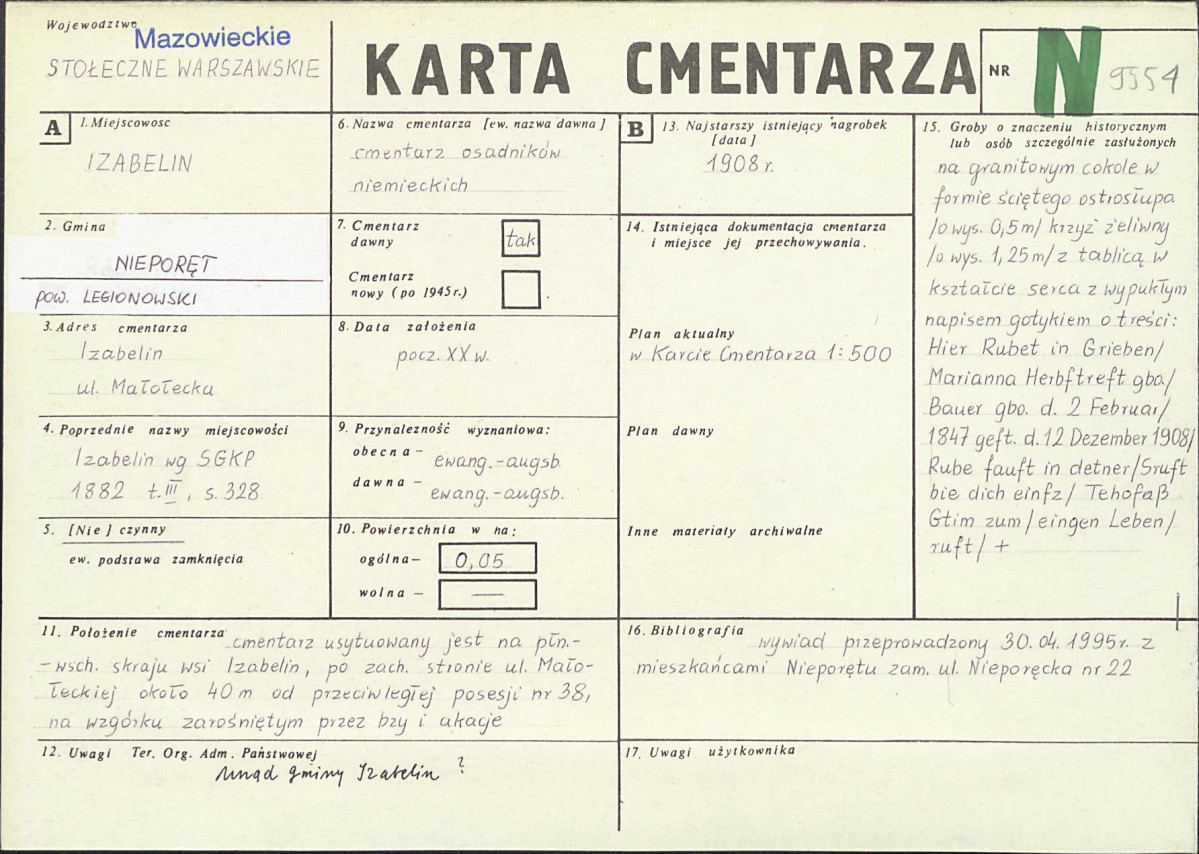 Województwo
Mazowieckie
STOŁECZNE WARSZAWSKIE
KARTA CMENTARZA
NR
N 9554
A
1. Miejscowosc
IZABELIN
2. Gmina
NIEPORĘT
pow. LEGIONOWSKI
3. Adres cmentarza
Izabelin
ul. Małołecka
4. Poprzednie nazwy miejscowości
Izabelin wg SGKP
1882 t. III, s. 328
5. [Nie] czynny
ew. podstawa zamknięcia
6. Nazwa cmentarza [ew. nazwa dawna]
cmentarz osadników
niemieckich
7. Cmentarz
dawny
tak
Cmentarz
nowy (po 1945 r.)
8. Data założenia
pocz. XX w.
9. Przynalezność wyznaniowa:
obecna – ewang.-augsb
dawna – ewang.-augsb.
10. Powierzchnia w ha:
ogólna – 0,05
wolna – —
11. Położenie cmentarza cmentarz usytuowany jest na płn.-
-wsch. skraju wsi Izabelin, po zach. stronie ul. Mało-
łeckiej około 40 m od przeciwległej posesji nr 38,
na wzgórku zarośniętym przez bzy i akacje
12. Uwagi Ter. Org. Adm. Państwowej
Urząd Gminy Izabelin ?
B
13. Najstarszy istniejący nagrobek
[data]
1908 r.
14. Istniejąca dokumentacja cmentarza
i miejsce jej przechowywania.
Plan aktualny
w Karcie Cmentarza 1:500
Plan dawny
Inne materiały archiwalne
15. Groby o znaczeniu historycznym
lub osób szczególnie zasłużonych
na granitowym cokole w
formie ściętego ostrosłupa
/o wys. 0,5 m/ krzyż żeliwny
/o wys. 1,25 m/ z tablicą w
kształcie serca z wypukłym
napisem gotykiem o treści:
Hier Rubet in Grieben/
Marianna Herbftreft gba/
Bauer gbo. d. 2 Februar/
1847 geft. d. 12 Dezember 1908/
Rube fauft in detner/Sruft
bie dich einfz/ Tehofaß
Gtim zum/eingen Leben/
ruft/ +
16. Bibliografia wywiad przeprowadzony 30.04.1995 r. z
mieszkańcami Nieporętu zam. ul. Nieporęcka nr 22
17. Uwagi użytkownika